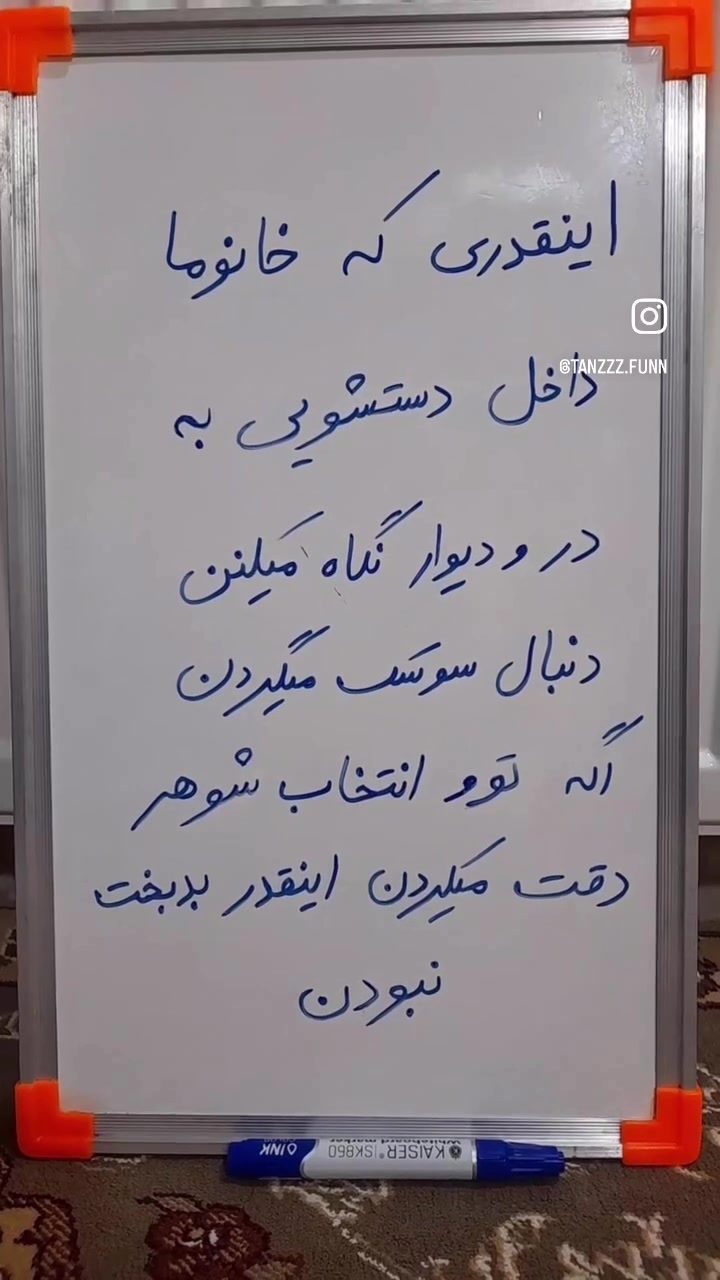 اینقدری که خانوما
@TANZZZ.FUNN
داخل دستشویی به
در و دیوار نگاه میکنن
دنبال سوسک میگردن
اگه توو انتخاب شوهر
دقت میکردن اینقدر بدبخت
نبودن
KAISER SK860
Whiteboard marker
INK